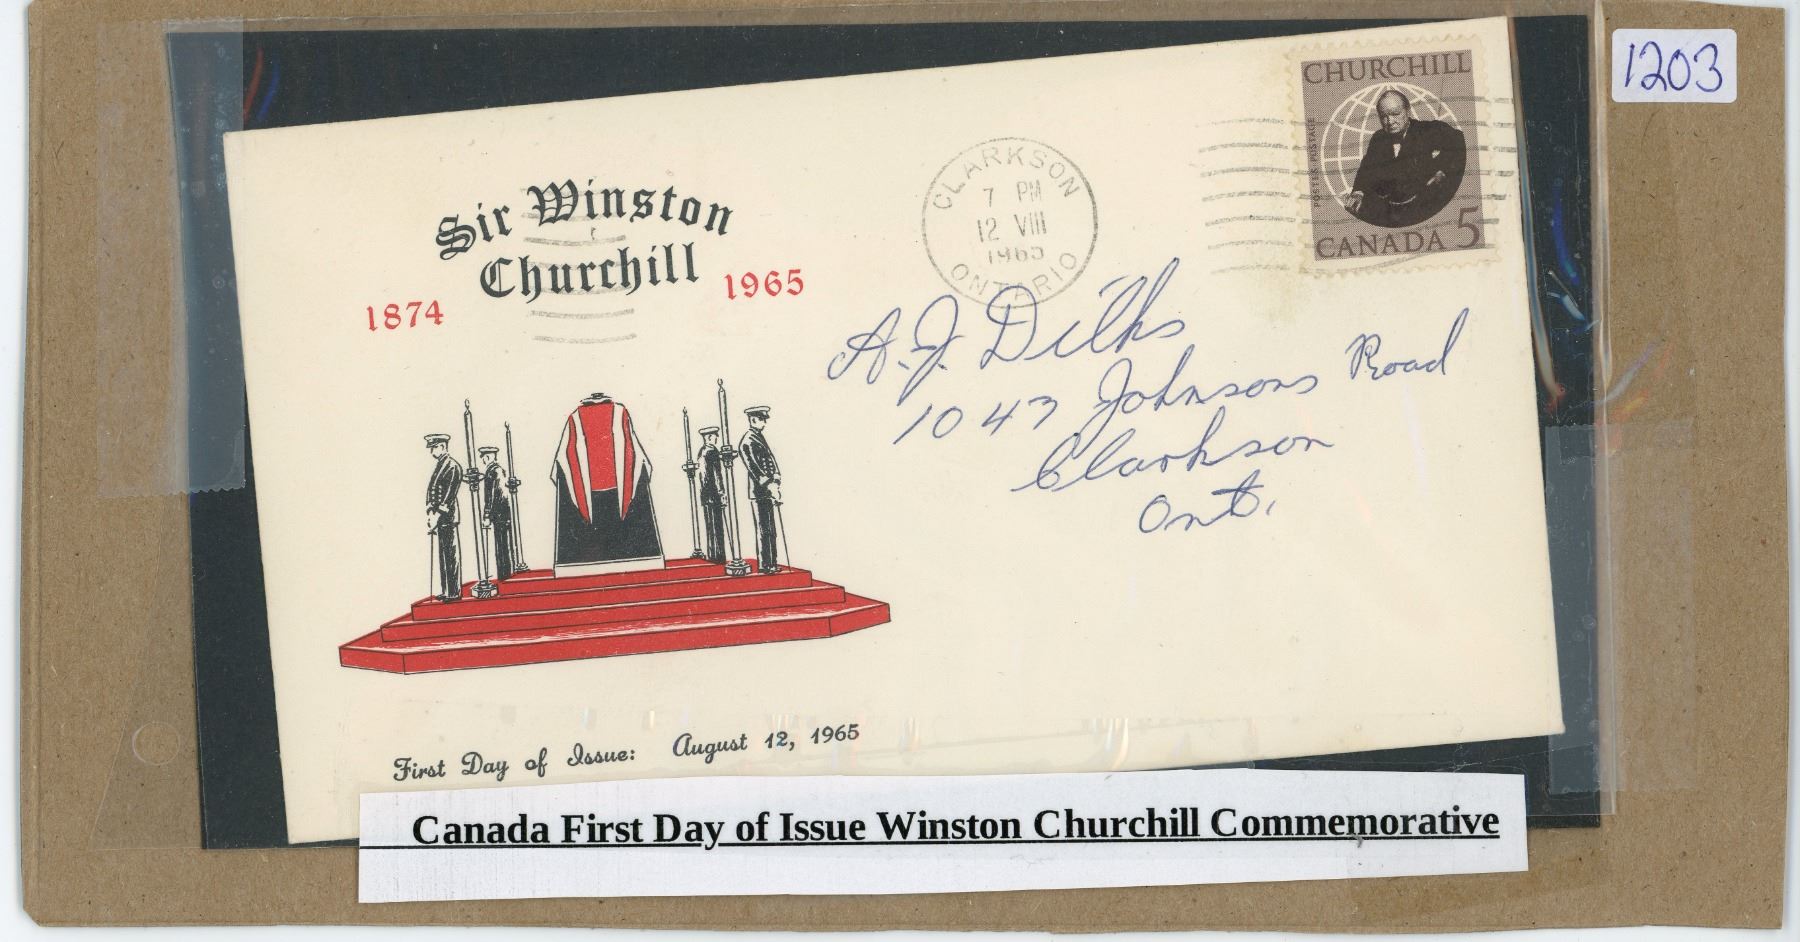 1203
CHURCHILL
POSTES POSTAGE
CANADA 5
CLARKSON
7 PM
12 VIII
1965
ONTARIO
Sir Winston
Churchill
1874 1965
A. J. Dilks
1047 Johnsons Road
Clarkson
Ont.
First Day of Issue: August 12, 1965
Canada First Day of Issue Winston Churchill Commemorative